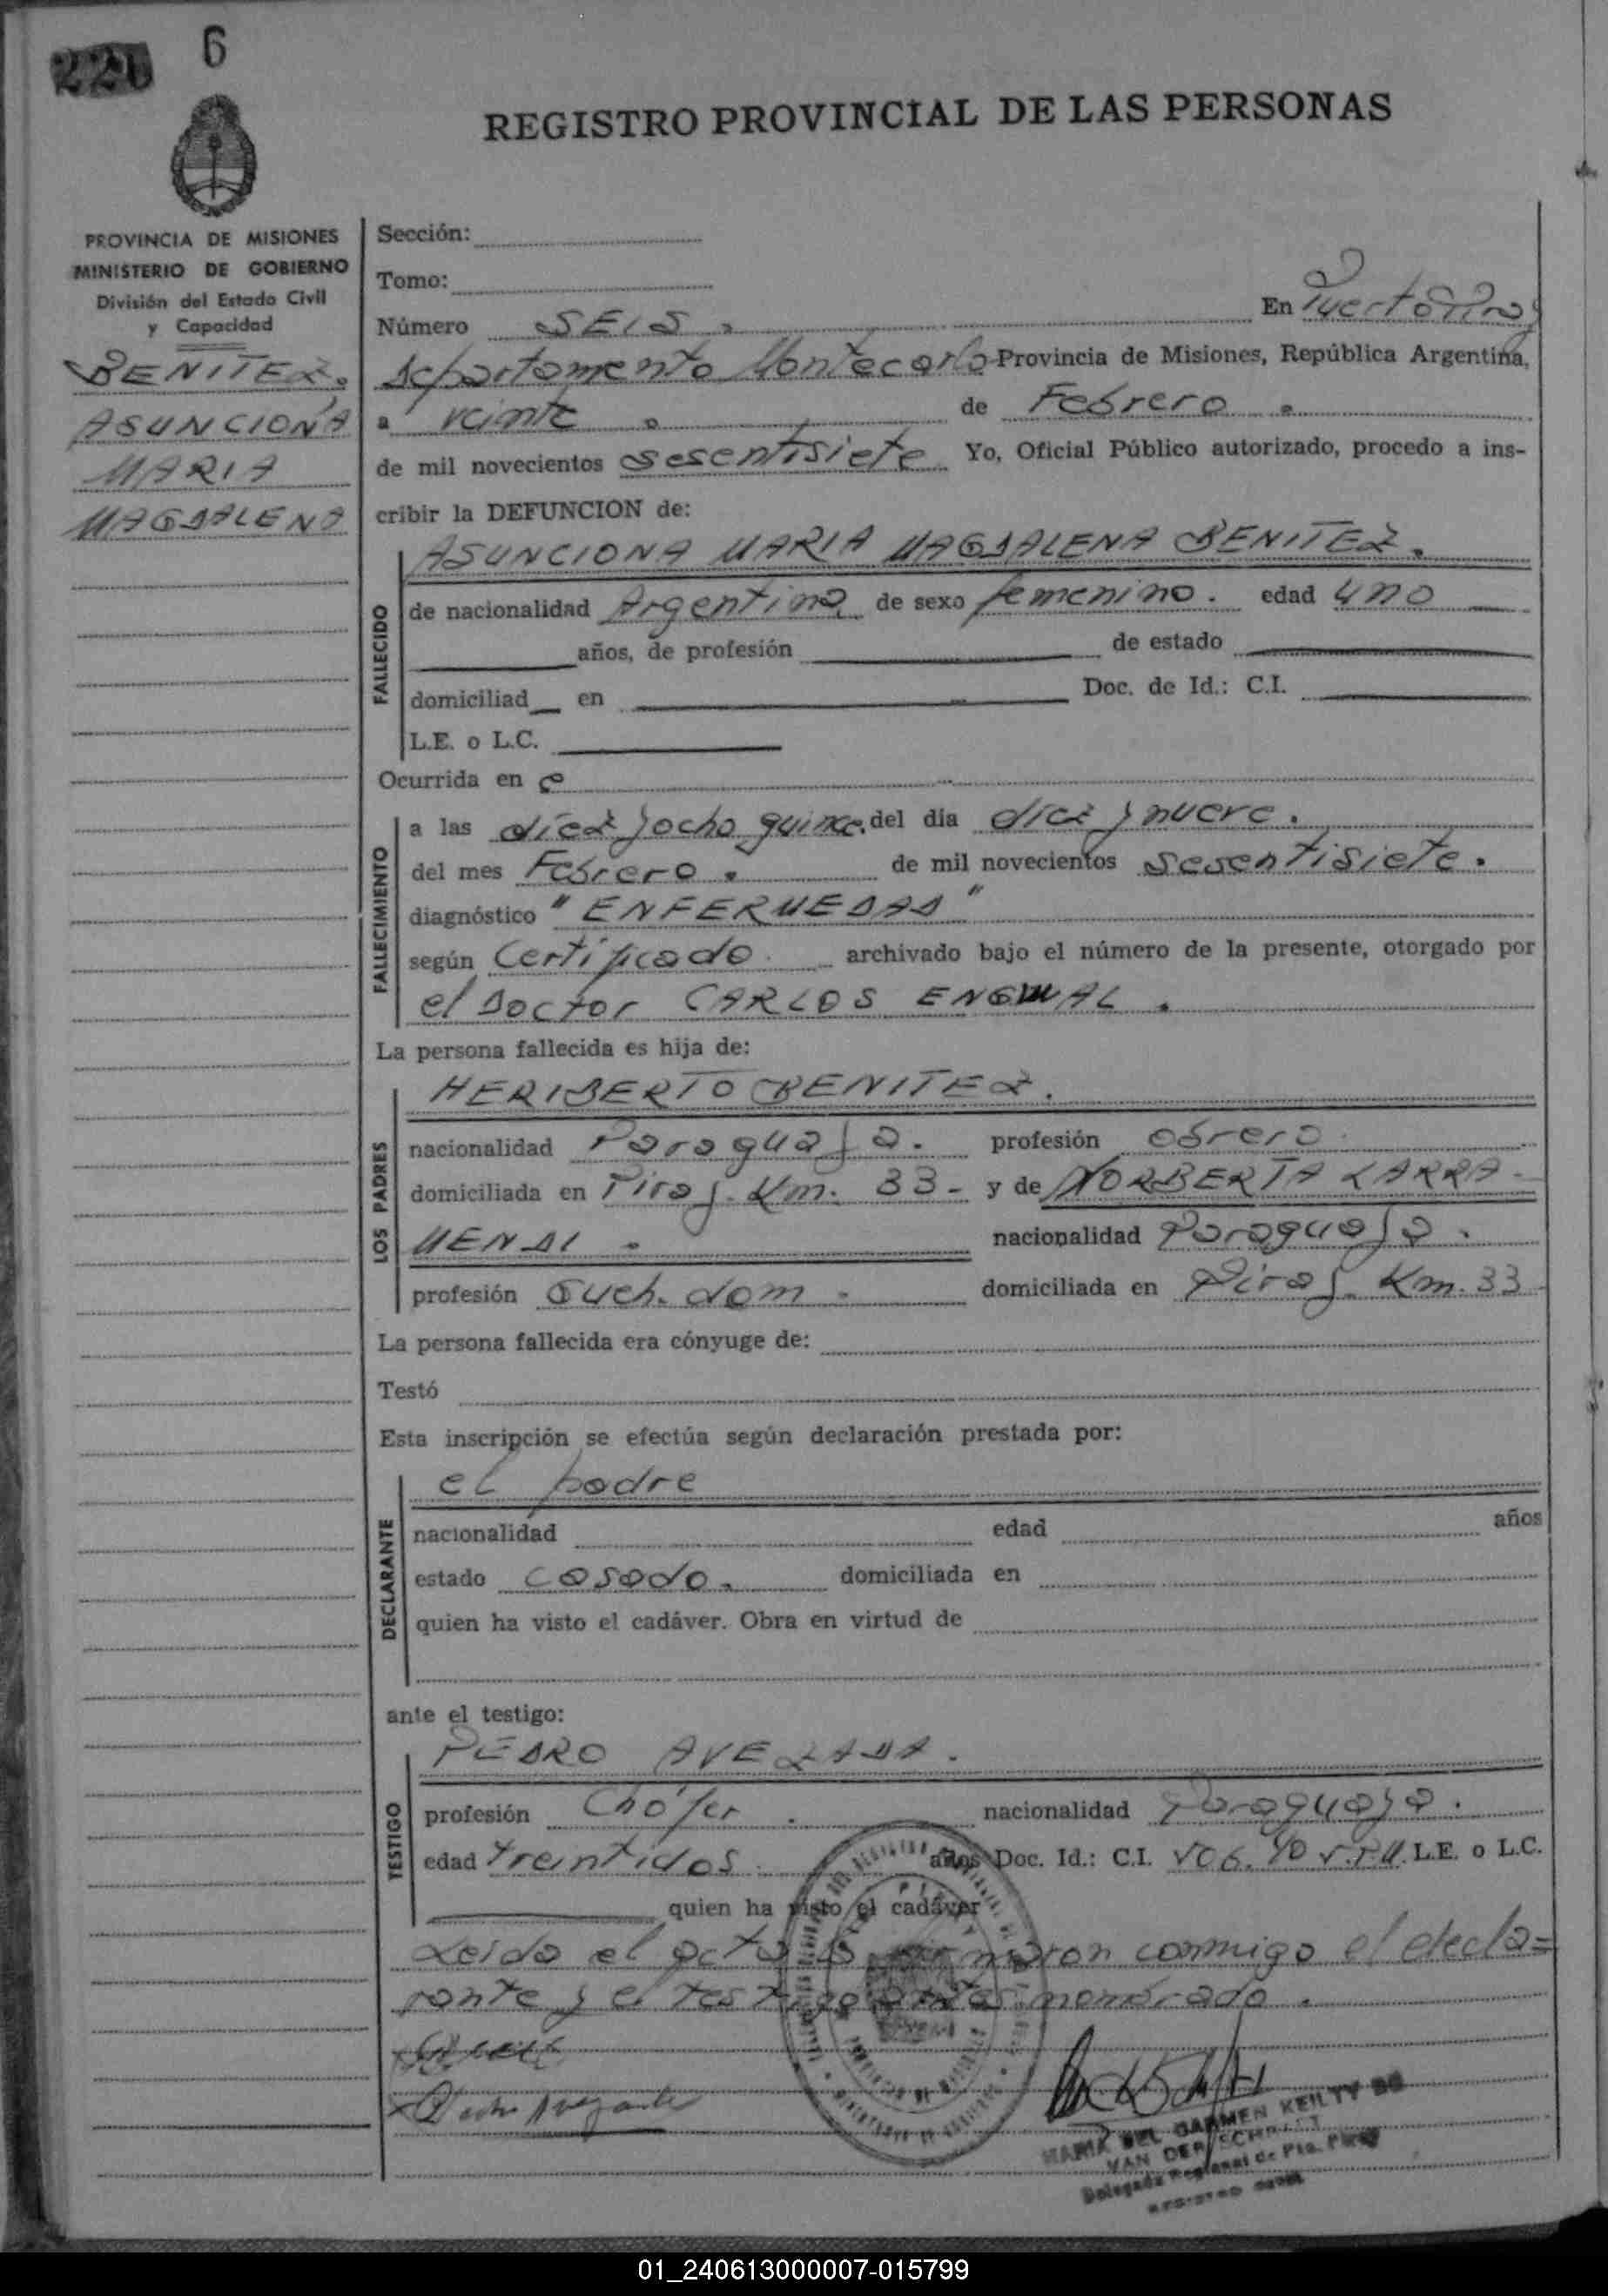 226 6
REGISTRO PROVINCIAL DE LAS PERSONAS
PROVINCIA DE MISIONES
MINISTERIO DE GOBIERNO
División del Estado Civil
y Capacidad
BENITEZ.
ASUNCIONA
MARIA
MAGDALENA
Sección:
Tomo:
Número SEIS. En Puerto Piray
departamento Montecarlo Provincia de Misiones, República Argentina,
a veinte de Febrero.
de mil novecientos sesentisiete Yo, Oficial Público autorizado, procedo a ins-
cribir la DEFUNCION de:
ASUNCIONA MARIA MAGDALENA BENITEZ.
FALLECIDO
de nacionalidad Argentina de sexo femenino. edad uno
años, de profesión de estado
domiciliad en Doc. de Id.: C.I.
L.E. o L.C.
Ocurrida en
FALLECIMIENTO
a las diez y ocho quince. del día diez y nueve.
del mes Febrero. de mil novecientos sesentisiete.
diagnóstico "ENFERMEDAD"
según Certificado. archivado bajo el número de la presente, otorgado por
el Doctor CARLOS
La persona fallecida es hija de:
LOS PADRES
HERIBERTO BENITEZ.
nacionalidad Paraguaya. profesión obrero.
domiciliada en Piray. Km. 33- y de NORBERTA LARRA-
MENDI. nacionalidad Paraguaya.
profesión Queh. dom. domiciliada en Piray. Km. 33
La persona fallecida era cónyuge de:
Testó
Esta inscripción se efectúa según declaración prestada por:
DECLARANTE
el padre
nacionalidad edad años
estado casado. domiciliada en
quien ha visto el cadáver. Obra en virtud de
ante el testigo:
TESTIGO
PEDRO AVEZADA.
profesión Chófer. nacionalidad Paraguaya.
edad treintidos años Doc. Id.: C.I. L.E. o L.C.
quien ha visto el cadáver
Leida el acta la firmaron conmigo el decla=
rante y el testigo antes nombrado.
MARIA DEL CARMEN KEILTY DE
VAN DER SCHRAFT
Delegada Regional de Pto. Piray
01_240613000007-015799